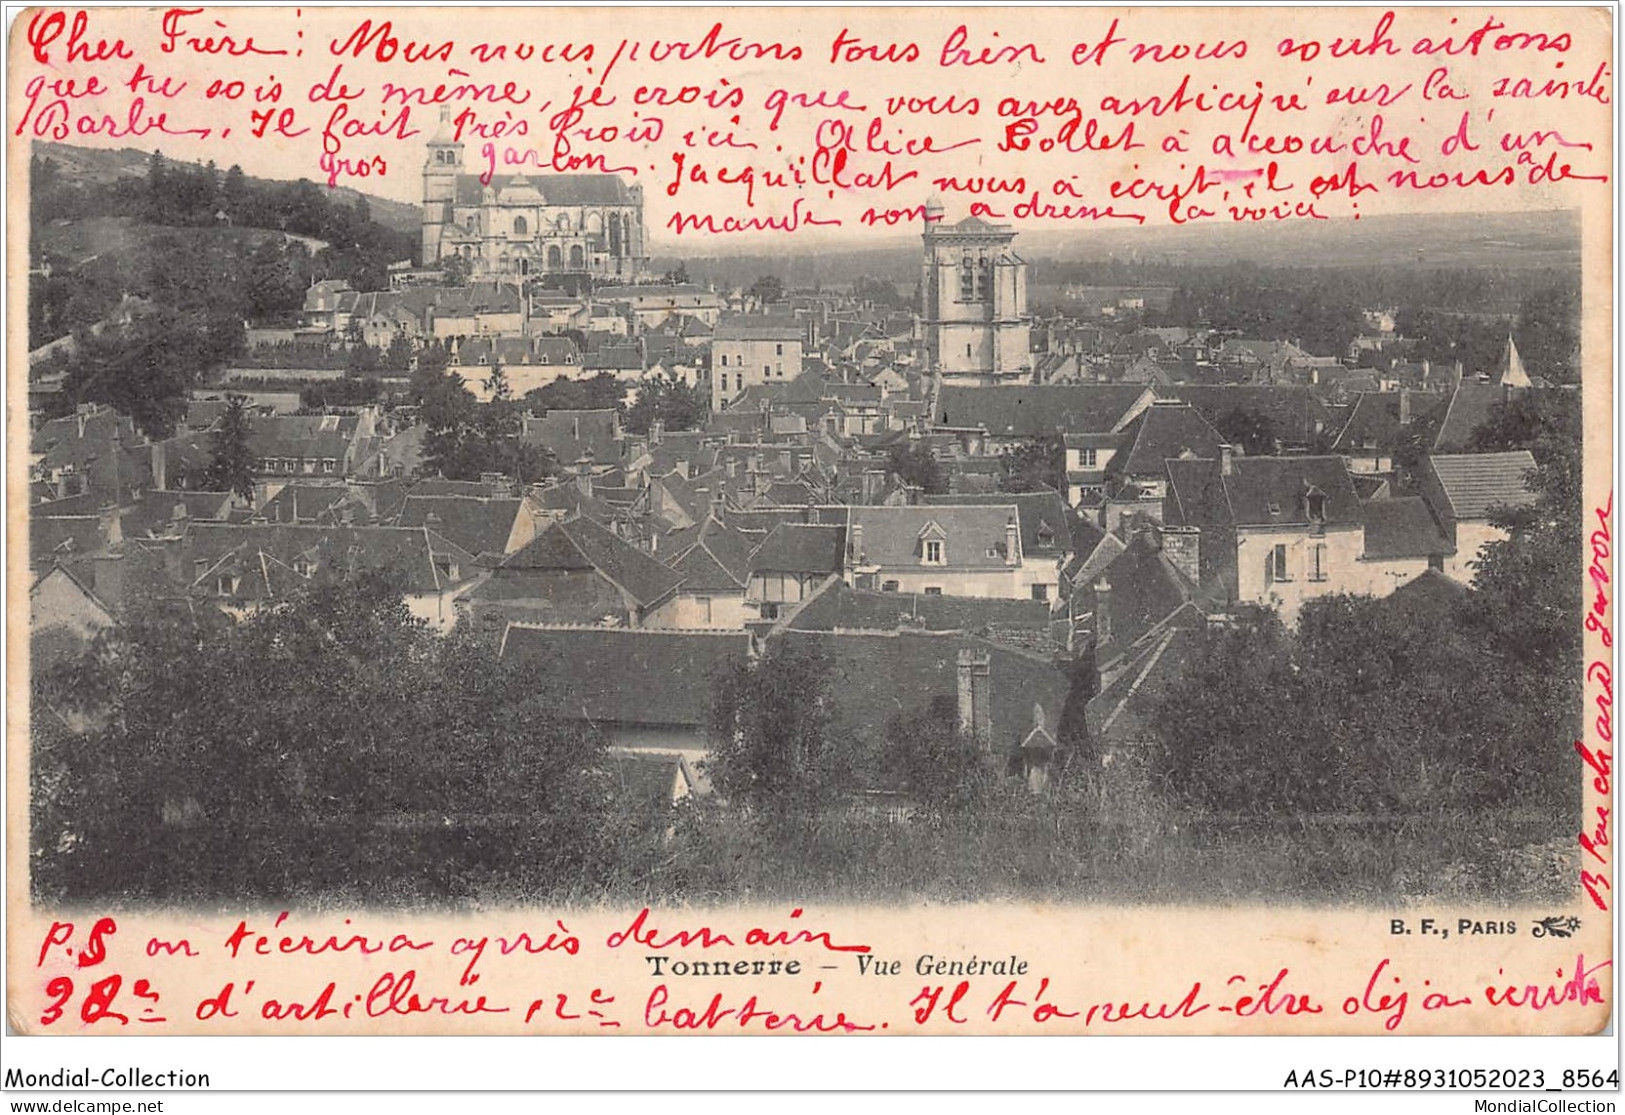 Cher Frère : Nous nous portons tous bien et nous souhaitons
que tu sois de même, je crois que vous avez anticipé sur la sainte
Barbe. Il fait très froid ici. Alice Collet à accouché d'un
gros garçon. Jacquillat nous à écrit, il nous a de
mandé son adresse la voici :
Bouchard
P.S on t'écrira après demain
Tonnerre – Vue Générale
B. F., PARIS
d'artillerie, 2e batterie. Il t'a peut-être déja écrit
Mondial-Collection
AAS-P10#8931052023_8564
MondialCollection